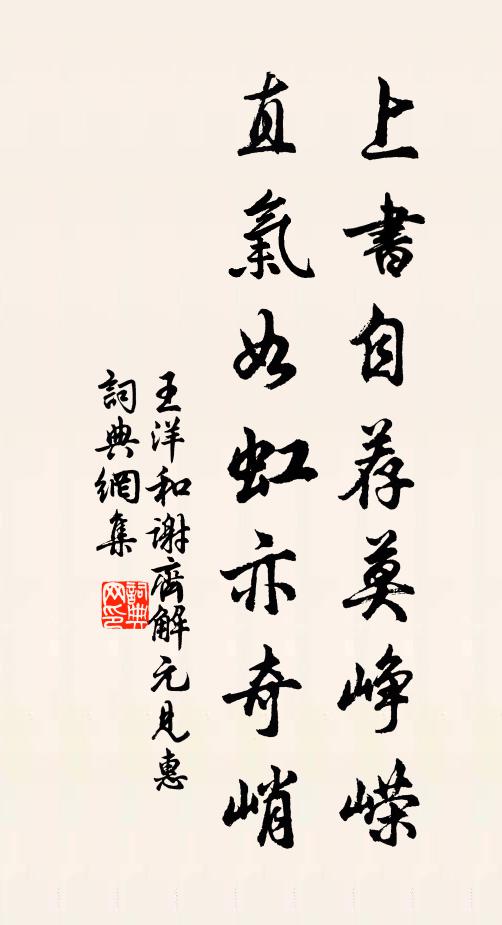 上書自荐莫崢嶸
直氣如虹亦奇峭
王洋和謝齊解元見惠
詞典網集
詞典网印